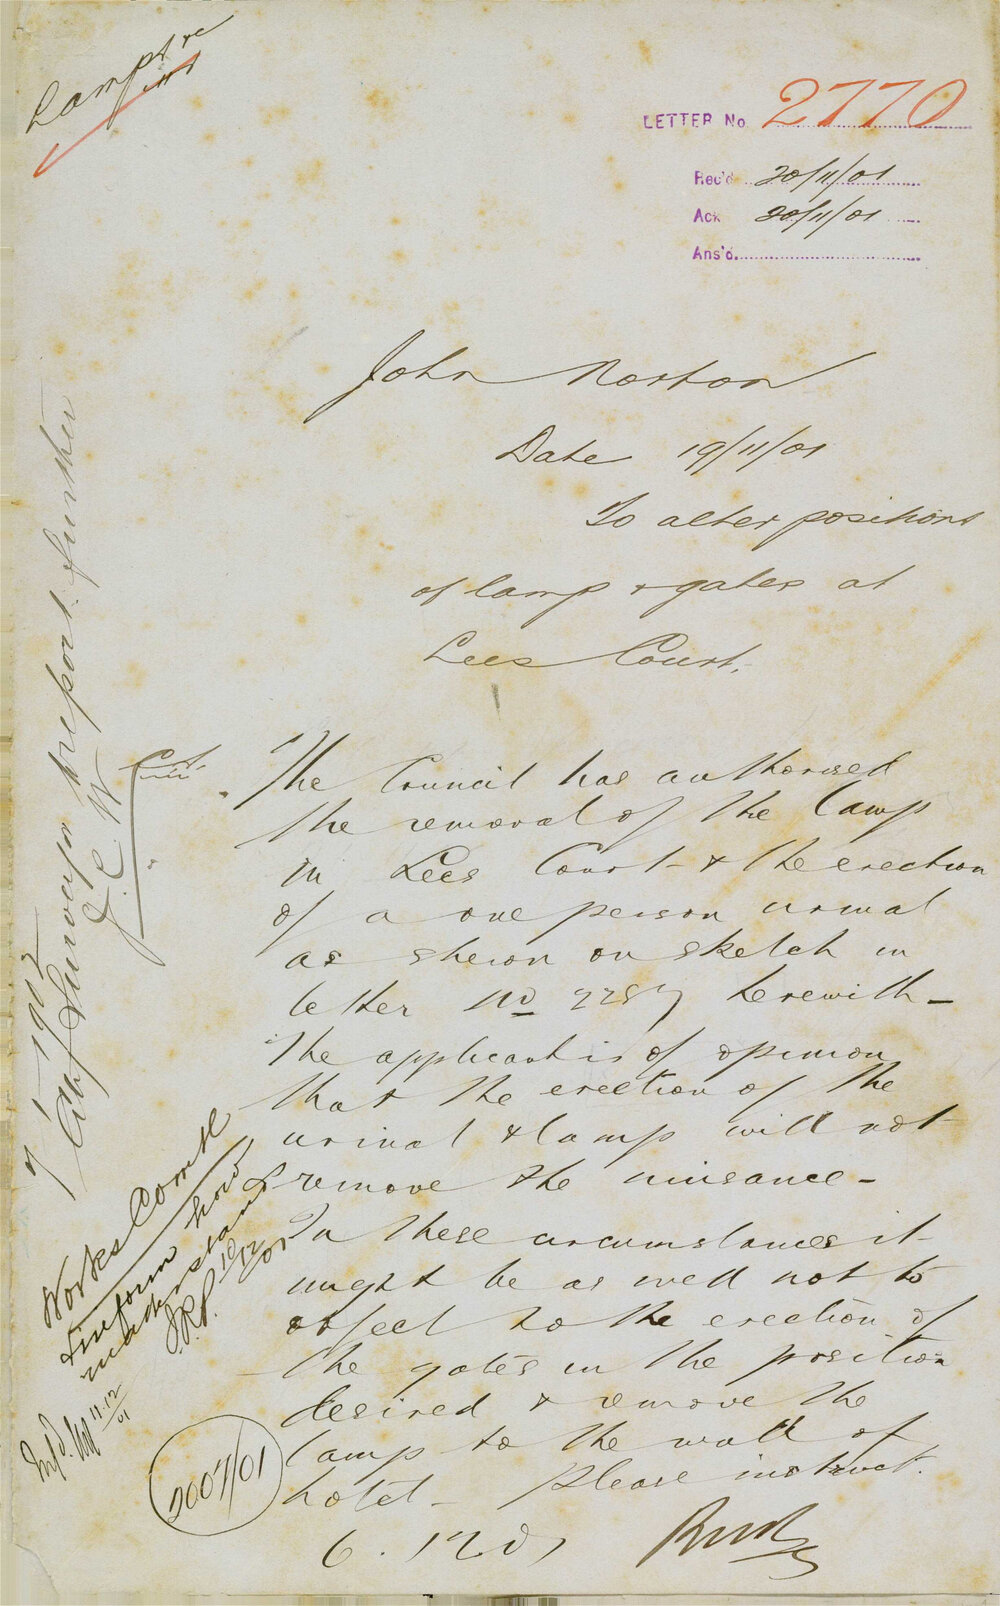 Lamps re
LETTER No 2770
Rec'd 20/11/01
Ack 20/11/01
Ans'd.
John Norton
Date 19/11/01
To alter positions
of lamp & gates at
Lees Court.
The Council has authorised
the removal of the lamp
in Lees Court & the erection
of a one person urinal
as shewn on sketch in
letter No 2287 herewith -
The applicant is of opinion
that the erection of the
urinal & lamp will not
remove the nuisance -
In these circumstances it
might be as well not to
object to the erection of
the gates in the position
desired & remove the
lamp to the wall of
hotel - Please instruct.
6.12.01
Works Comte
& inform how
matter stands
J.R.P. 10/12/01
Inf'd. 11.12/01
2007/01
7/1/1902
City Surveyor to report further
J.C.W.